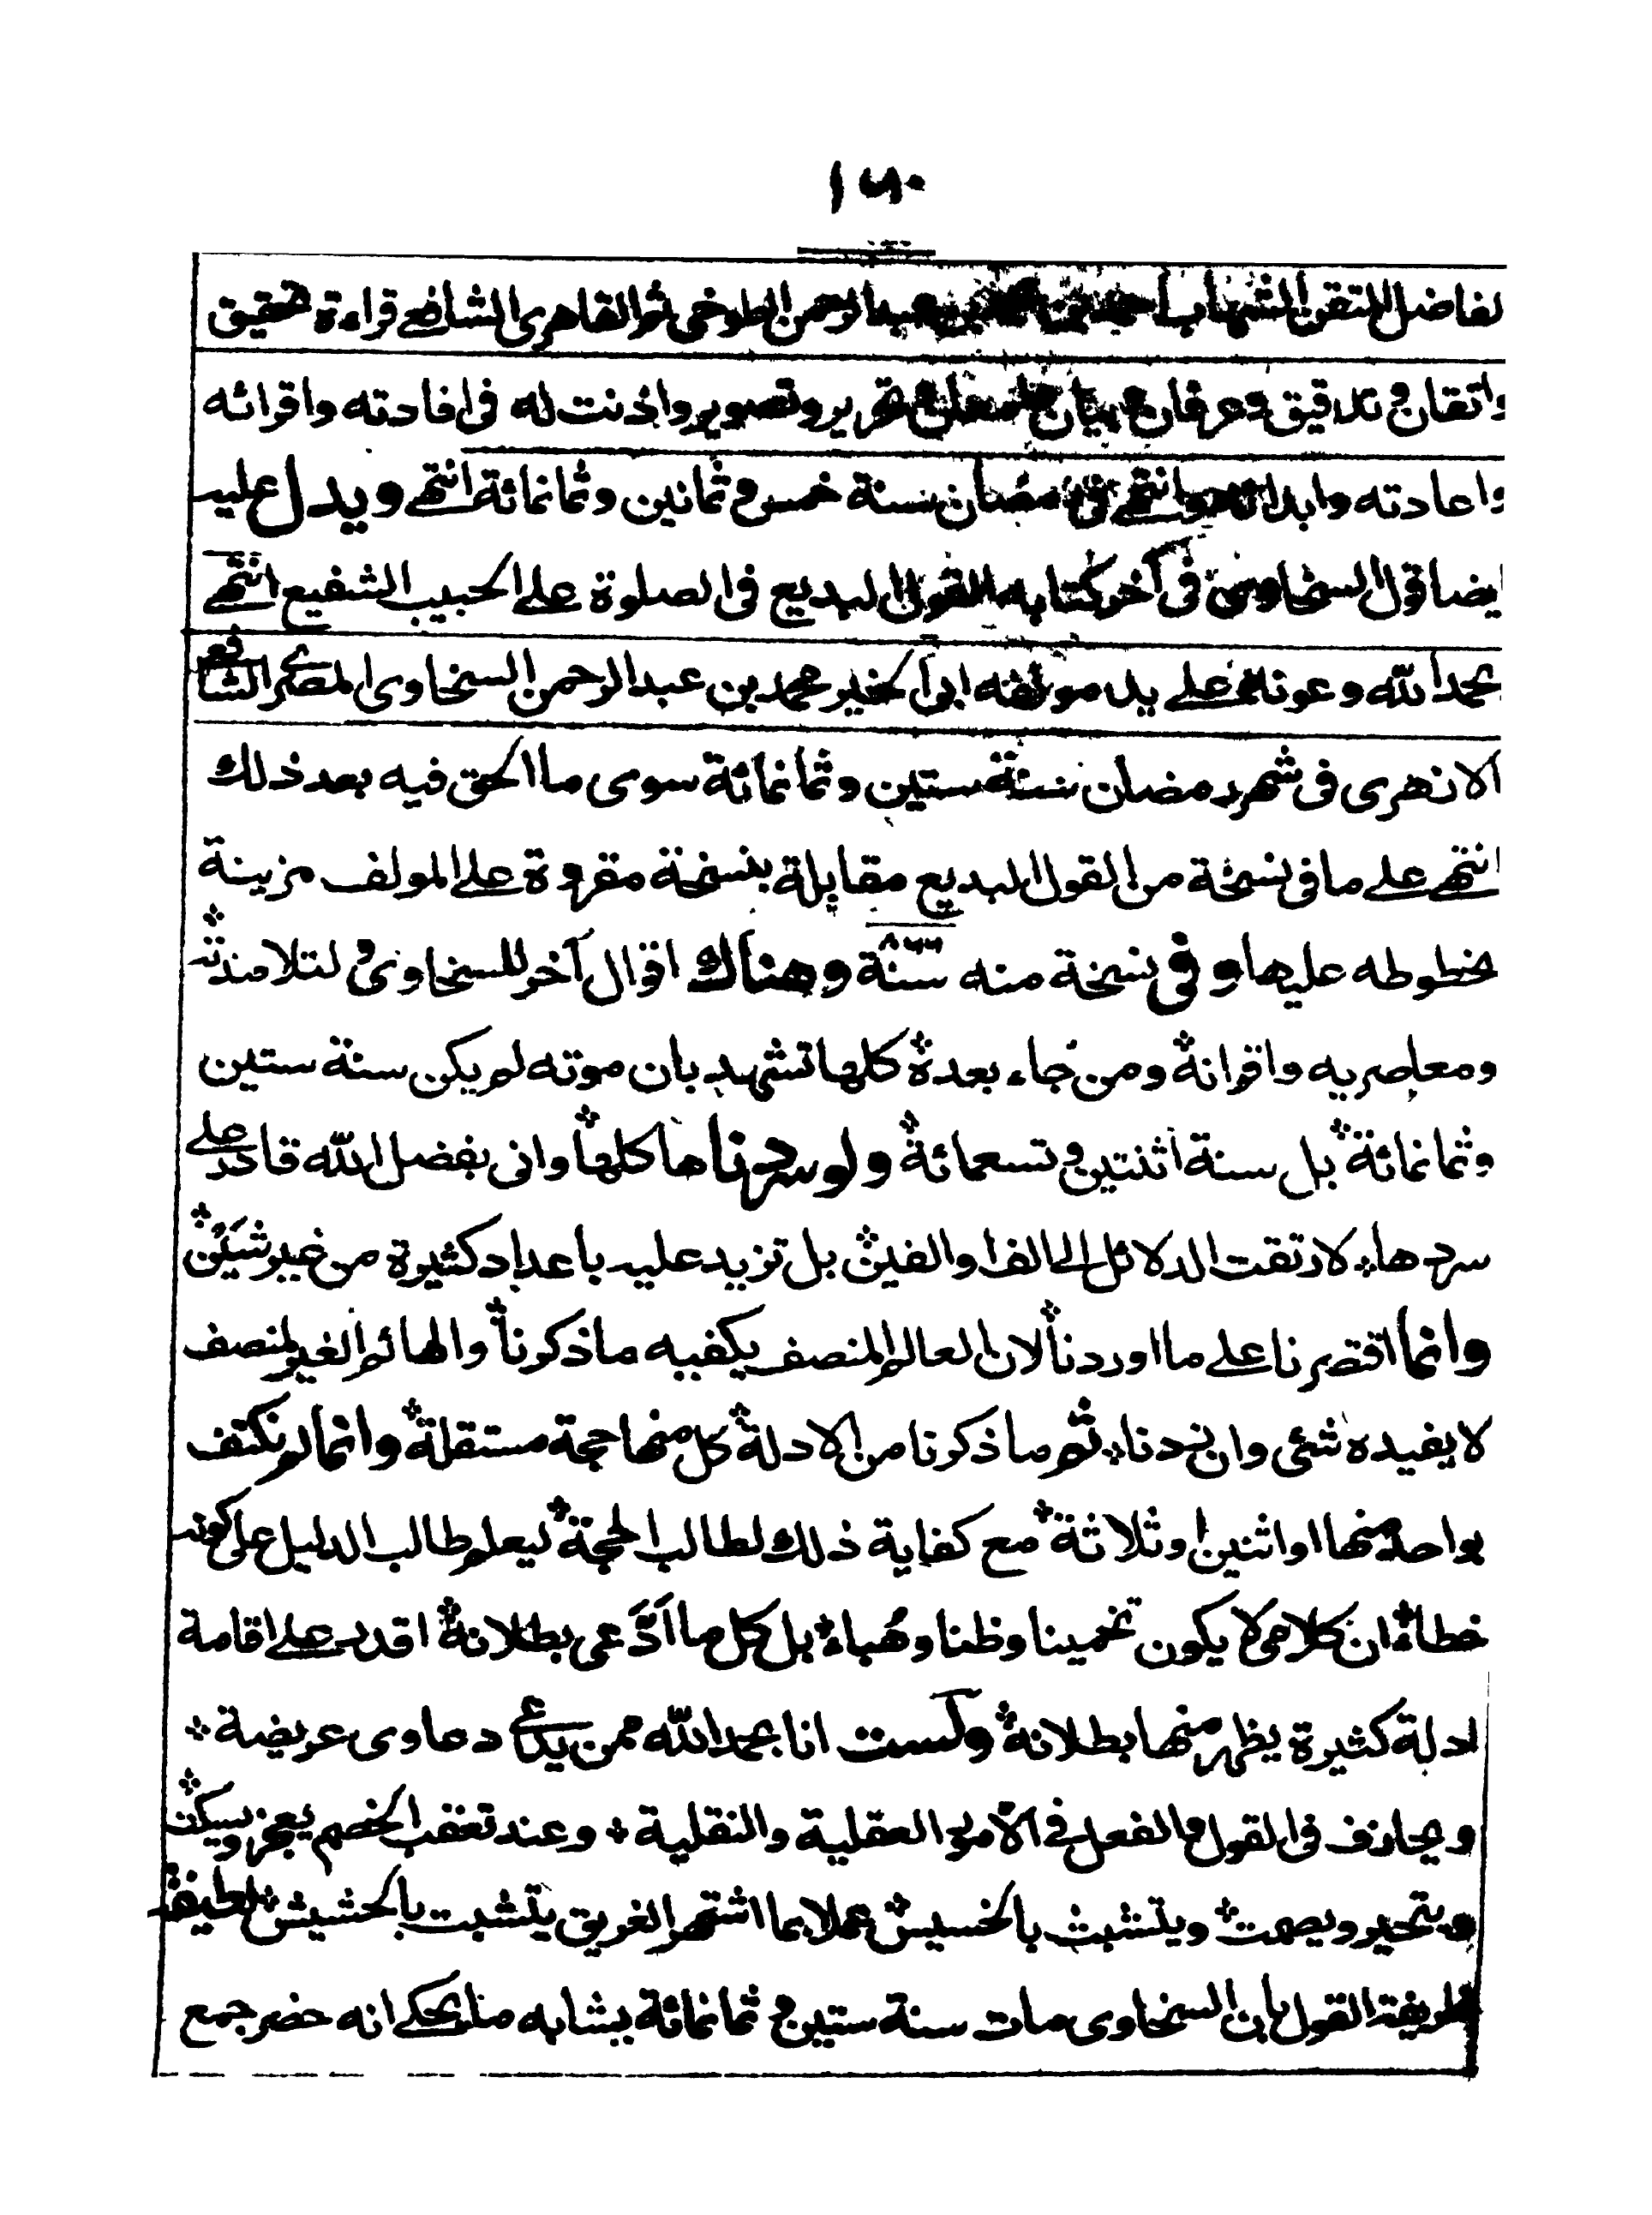 ١٦٠
لفاضل المتقن الشهاب احمد بن محمد بن عبد الرحمن الطوخى ثم القاهرى الشافعى قراءة تحقيق
واتقان وتدقيق وعرفان وبيان وتحرير وتصوير واذنت له فى افادته واقرائه
واعادته وابدائه انتهى فى رمضان سنة خمس وثمانين وثمانمائة انتهى ويدل عليه
ايضا قول السخاوى فى آخر كتابه القول البديع فى الصلوة على الحبيب الشفيع انتهى
بحمد الله وعونه على يد مؤلفه ابى الخير محمد بن عبد الرحمن السخاوى المصرى الشافعى
الازهرى فى شهر رمضان سنة ستين وثمانمائة سوى ما الحق فيه بعد ذلك
انتهى على ما فى نسخة من القول البديع مقابلة بنسخة مقروة على المولف مزينة
بخطوطه عليها وفى نسخة منه سنة وهناك اقوال آخر للسخاوى ولتلامذته
ومعاصريه واقرانه ومن جاء بعده كلها تشهد بان موته لم يكن سنة ستين
وثمانمائة بل سنة اثنتين وتسعمائة ولو سردناها كلها وانى بفضل الله قادر على
سردها لارتقت الدلائل الى الف او الفين بل تزيد عليه باعداد كثيرة من غير شين
وانما اقتصرنا على ما اوردنا لان العالم المنصف يكفيه ما ذكرنا والهائم الغير المنصف
لا يفيده شئ وان زدنا ثم ما ذكرنا من الادلة كل منها حجة مستقلة وانما لم نكتف
بواحد منها او اثنين او ثلاثة مع كفاية ذلك لطالب الحجة ليعلم طالب الدليل على كونه
خطاء ان كلامى لا يكون تخمينا وظنا وهباء بل كل ما ادعى بطلانه اقدر على اقامة
ادلة كثيرة يظهر منها بطلانه ولست انا بحمد الله ممن يدعى دعاوى عريضة
ويجازف فى القول والفعل فى الامور العقلية والنقلية وعند تعقب الخصم يعجز ويسكت
ويتحير ويصمت ويتشبث بالخسيس عملا بما اشتهر الغريق يتشبت بالحشيش لطيفة
ظريفة القول بان السخاوى مات سنة ستين وثمانمائة يشابه ما يحكى انه حضر جمع